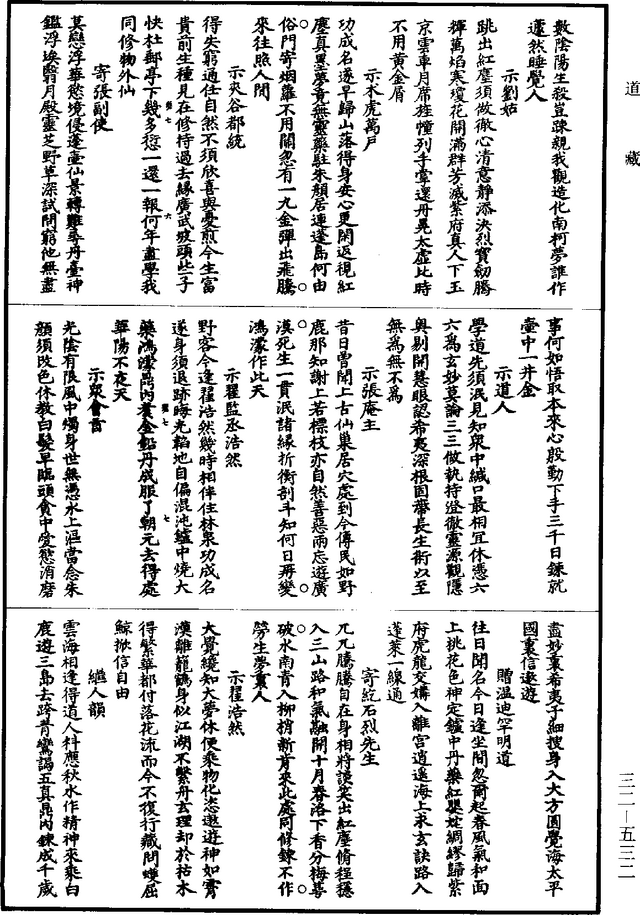 道藏
數陰陽生殺豈踈親我觀造化南柯夢誰作
蘧然睡覺人
示劉姑
跳出紅塵須做徹心清意靜添決烈寶劒騰
輝萬焰寒瓊花開滿群芳滅紫府真人下玉
京雲車月席旌幢列手掌還丹晃太虛比時
不用黃金屑
示朮虎萬戶
功成名遂早歸山落得身安心更閑返視紅
塵真噩夢竟無靈藥駐朱顏居連蓬島何由
俗門寄烟蘿不用關忽有一丸金彈出飛騰
來往照人間
示夾谷都統
得失窮通任自然不須欣喜與憂煎今生富
貴前生種見在修持過去緣廣武坡頭些子
快杜郵亭下幾多愆一還一報何年盡學我
同修物外仙
寄張副使
莫戀浮華慾境侵蓬壺仙景轉難尋丹臺神
鑑浮埃翳月殿靈芝野草深試問窮他無盡
事何如悟取本來心殷勤下手三千日鍊就
壺中一井金
示道人
學道先須泯見知眾中緘口最相宜休憑六
六為玄妙莫論三三做執持澄徹靈源觀隱
奧剔開慧眼認希夷深根固蔕長生術以至
無為無不為
示張庵主
昔日曾聞上古仙巢居穴處到今傳民如野
鹿那知謝上若標枝亦自然善惡兩忘遊廣
漠死生一貫泯諸緣折衡剖斗知何日再變
鴻濛作此天
示瞿監丞浩然
野客今逢瞿浩然幾時相伴住林泉功成名
遂身須退跡晦光韜地自偏混沌鑪中燒大
藥鴻濛鼎內養金鉛丹成服了朝元去得處
華陽不夜天
示眾會首
光陰有限風中燭身世無憑水上漚當念朱
顏須改色休教白髮早臨頭貪中愛慾消磨
盡妙裏希夷子細搜身入大方圓覺海太平
國裏信遨遊
贈溫迪罕明道
往日聞名今日逢坐間忽爾起春風氣和面
上挑花色神定鑪中丹藥紅嬰姹綢繆歸紫
府虎龍交媾入離宮逍遙海上求玄訣路入
蓬萊一線通
寄紇石烈先生
兀兀騰騰自在身相將謖突出紅塵脩程穩
入三山路和氣融開十月春洛下香分梅萼
破水南青入柳梢新肯來此處同修鍊不作
勞生夢裏人
示瞿浩然
大覺纔知大夢休便乘物化恣遨遊神如霄
漢離籠鶴身似江湖不繫舟玄理却於枯木
得繁華都付落花流而今不復行藏問蠖屈
鯨掀信自由
繼人韻
雲海相逢得道人料應秋水作精神來乘白
鹿遊三島去跨青鸞謁五真鼎內鍊成千歲
三二—五三二